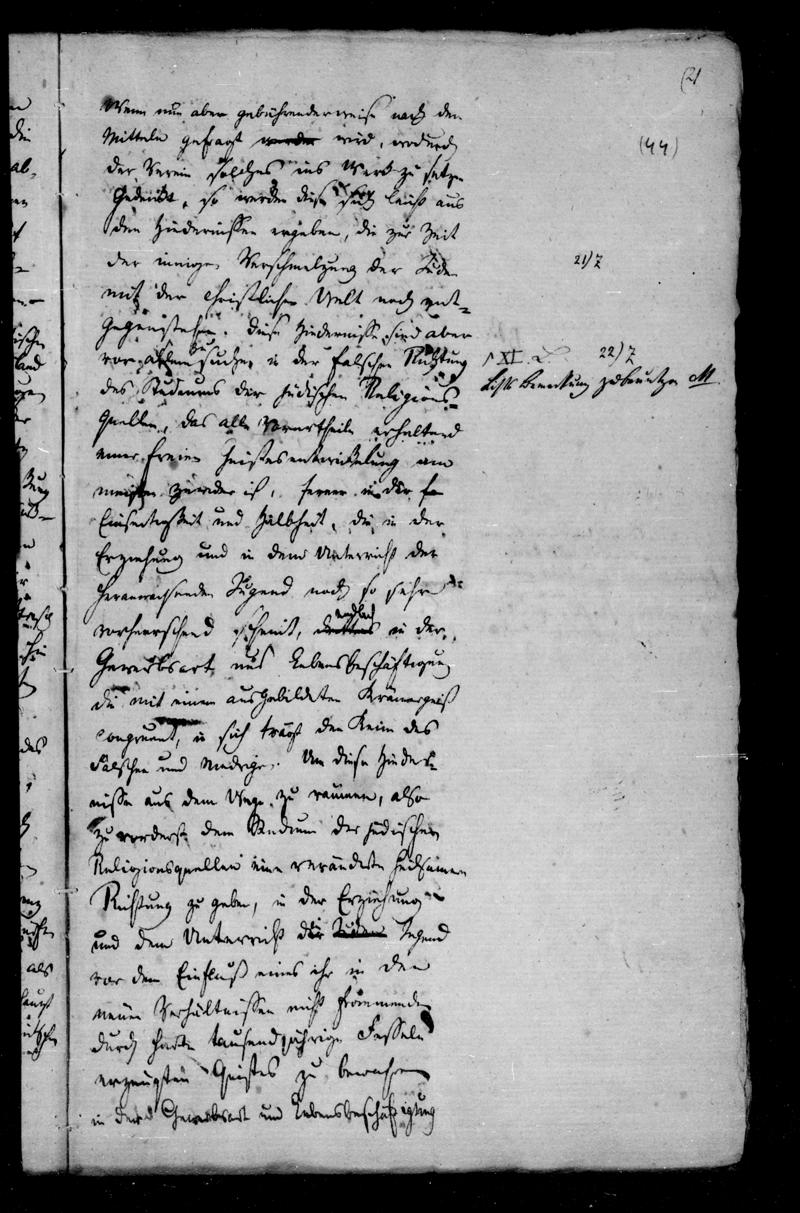 (21
Wenn nun aber gebührenderweise nach den
Mitteln gefragt wird, wodurch
(44)
der Verein solches ins Werk zu setzen
Gedenkt, so werden diese sich leicht aus
den Hindernissen ergeben, die zur Zeit
der innigen Verschmelzung der Juden
21)7
mit der christlichen Welt noch ent-
gegenstehen. Diese Hindernisse sind aber
vor allem zu suchen in der falschen Richtung
XI. 22)7
des Studiums der jüdischen Religions-
Bemerkung M
Quellen, das alle Vorurtheile erhaltend
einer freien Geistesentwickelung am
meisten zuwider ist, ferner in der
Einseitigkeit und Halbheit, die in der
Erziehung und in dem Unterricht der
heranwachsenden Jugend noch so sehr
vorherrschend scheint, endlich in der
Gewerbsart und Lebensbeschäftigung
die mit einem ausgebildeten Krämergeist
congruent, in sich trägt den Keim des
Falschen und Niedrigen. Um diese Hinder-
nisse aus dem Wege zu räumen, also
zuvorderst dem Studium der jüdischen
Religionsquellen eine veränderte heilsamere
Richtung zu geben, in der Erziehung
und dem Unterricht die Jugend
vor dem Einfluß eines ihr in den
neuen Verhältnissen nicht frommenden
durch harte tausendjährige Fesseln
erzeugten Geistes zu bewahren
in der Gewerbsart und Lebensbeschäftigung